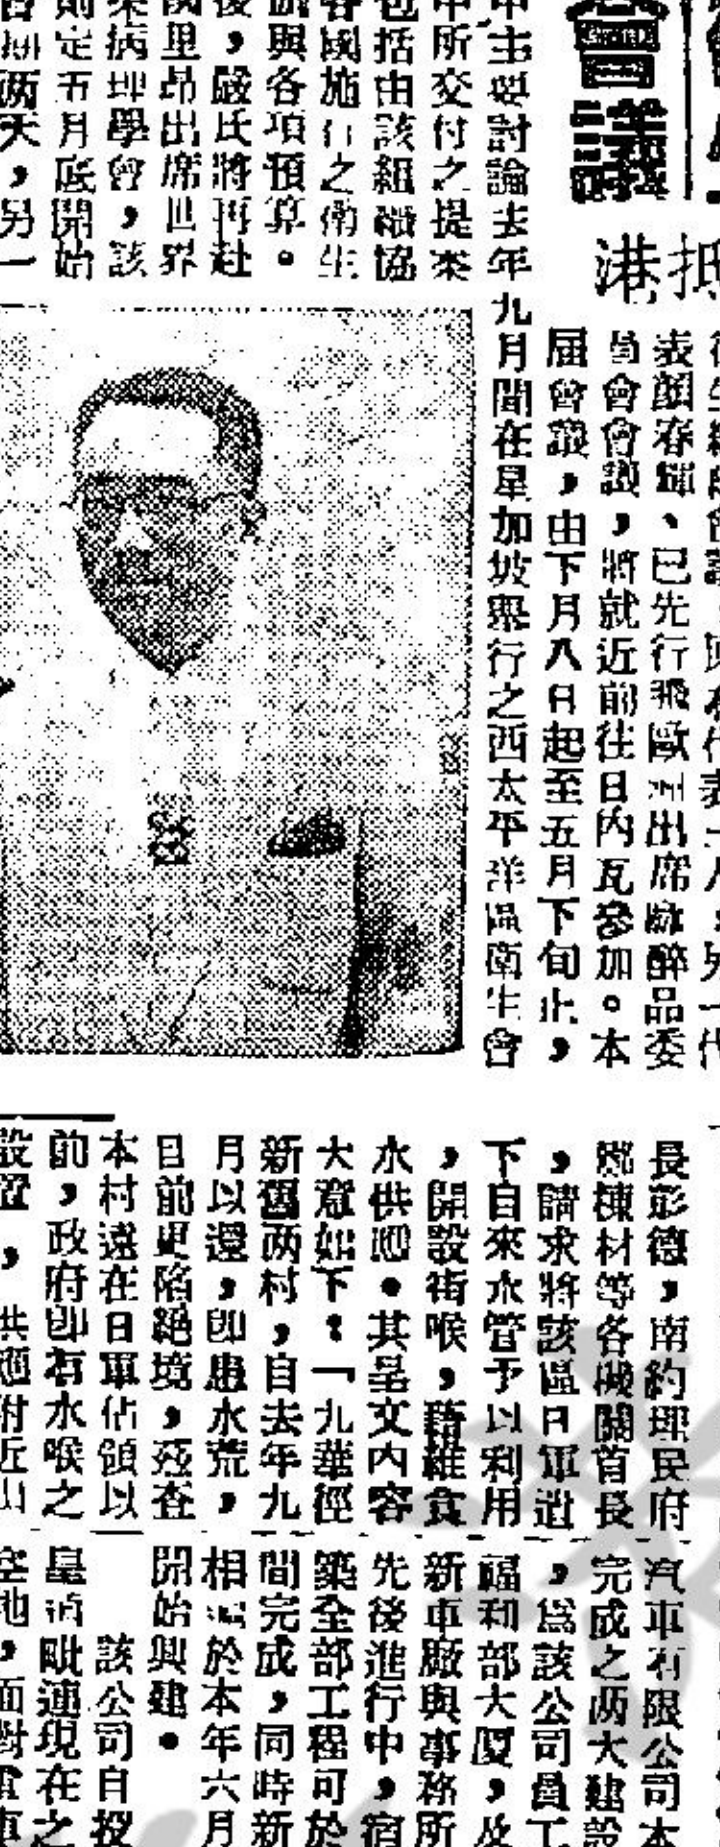 會議
抵港
表顏春輝、已先行飛歐洲出席麻醉品委
員會會議，將就近前往日內瓦參加。本
屆會議，由下月八日起至五月下旬止，
主要討論去年九月間在星加坡舉行之西太平洋區衛生會
中所交付之提案
包括由該組織協
各國施行之衛生
與各項預算。
後，嚴氏將再赴
國里昂出席世界
病理學會，該
則定五月底開始
兩天，另一
長彭德，南約理民府
鄭棟材等各機關首長
，請求將該區日軍遺
下自來水管予以利用
，開設街喉，藉維食
水供應。其呈文內容
大意如下：「九華徑
新舊兩村，自去年九
月以還，即患水荒，
目前更陷絕境，茲查
本村遠在日軍佔領以
前，政府卽有水喉之
設置，供應附近山
汽車有限公司本
完成之兩大建設
，爲該公司員工
福利部大厦，及
新車廠與事務所
先後進行中，宿
築全部工程可於
間完成，同時新
相於本年六月
開始興建。
該公司自投
皇后毗連現在之
空地，面對電車